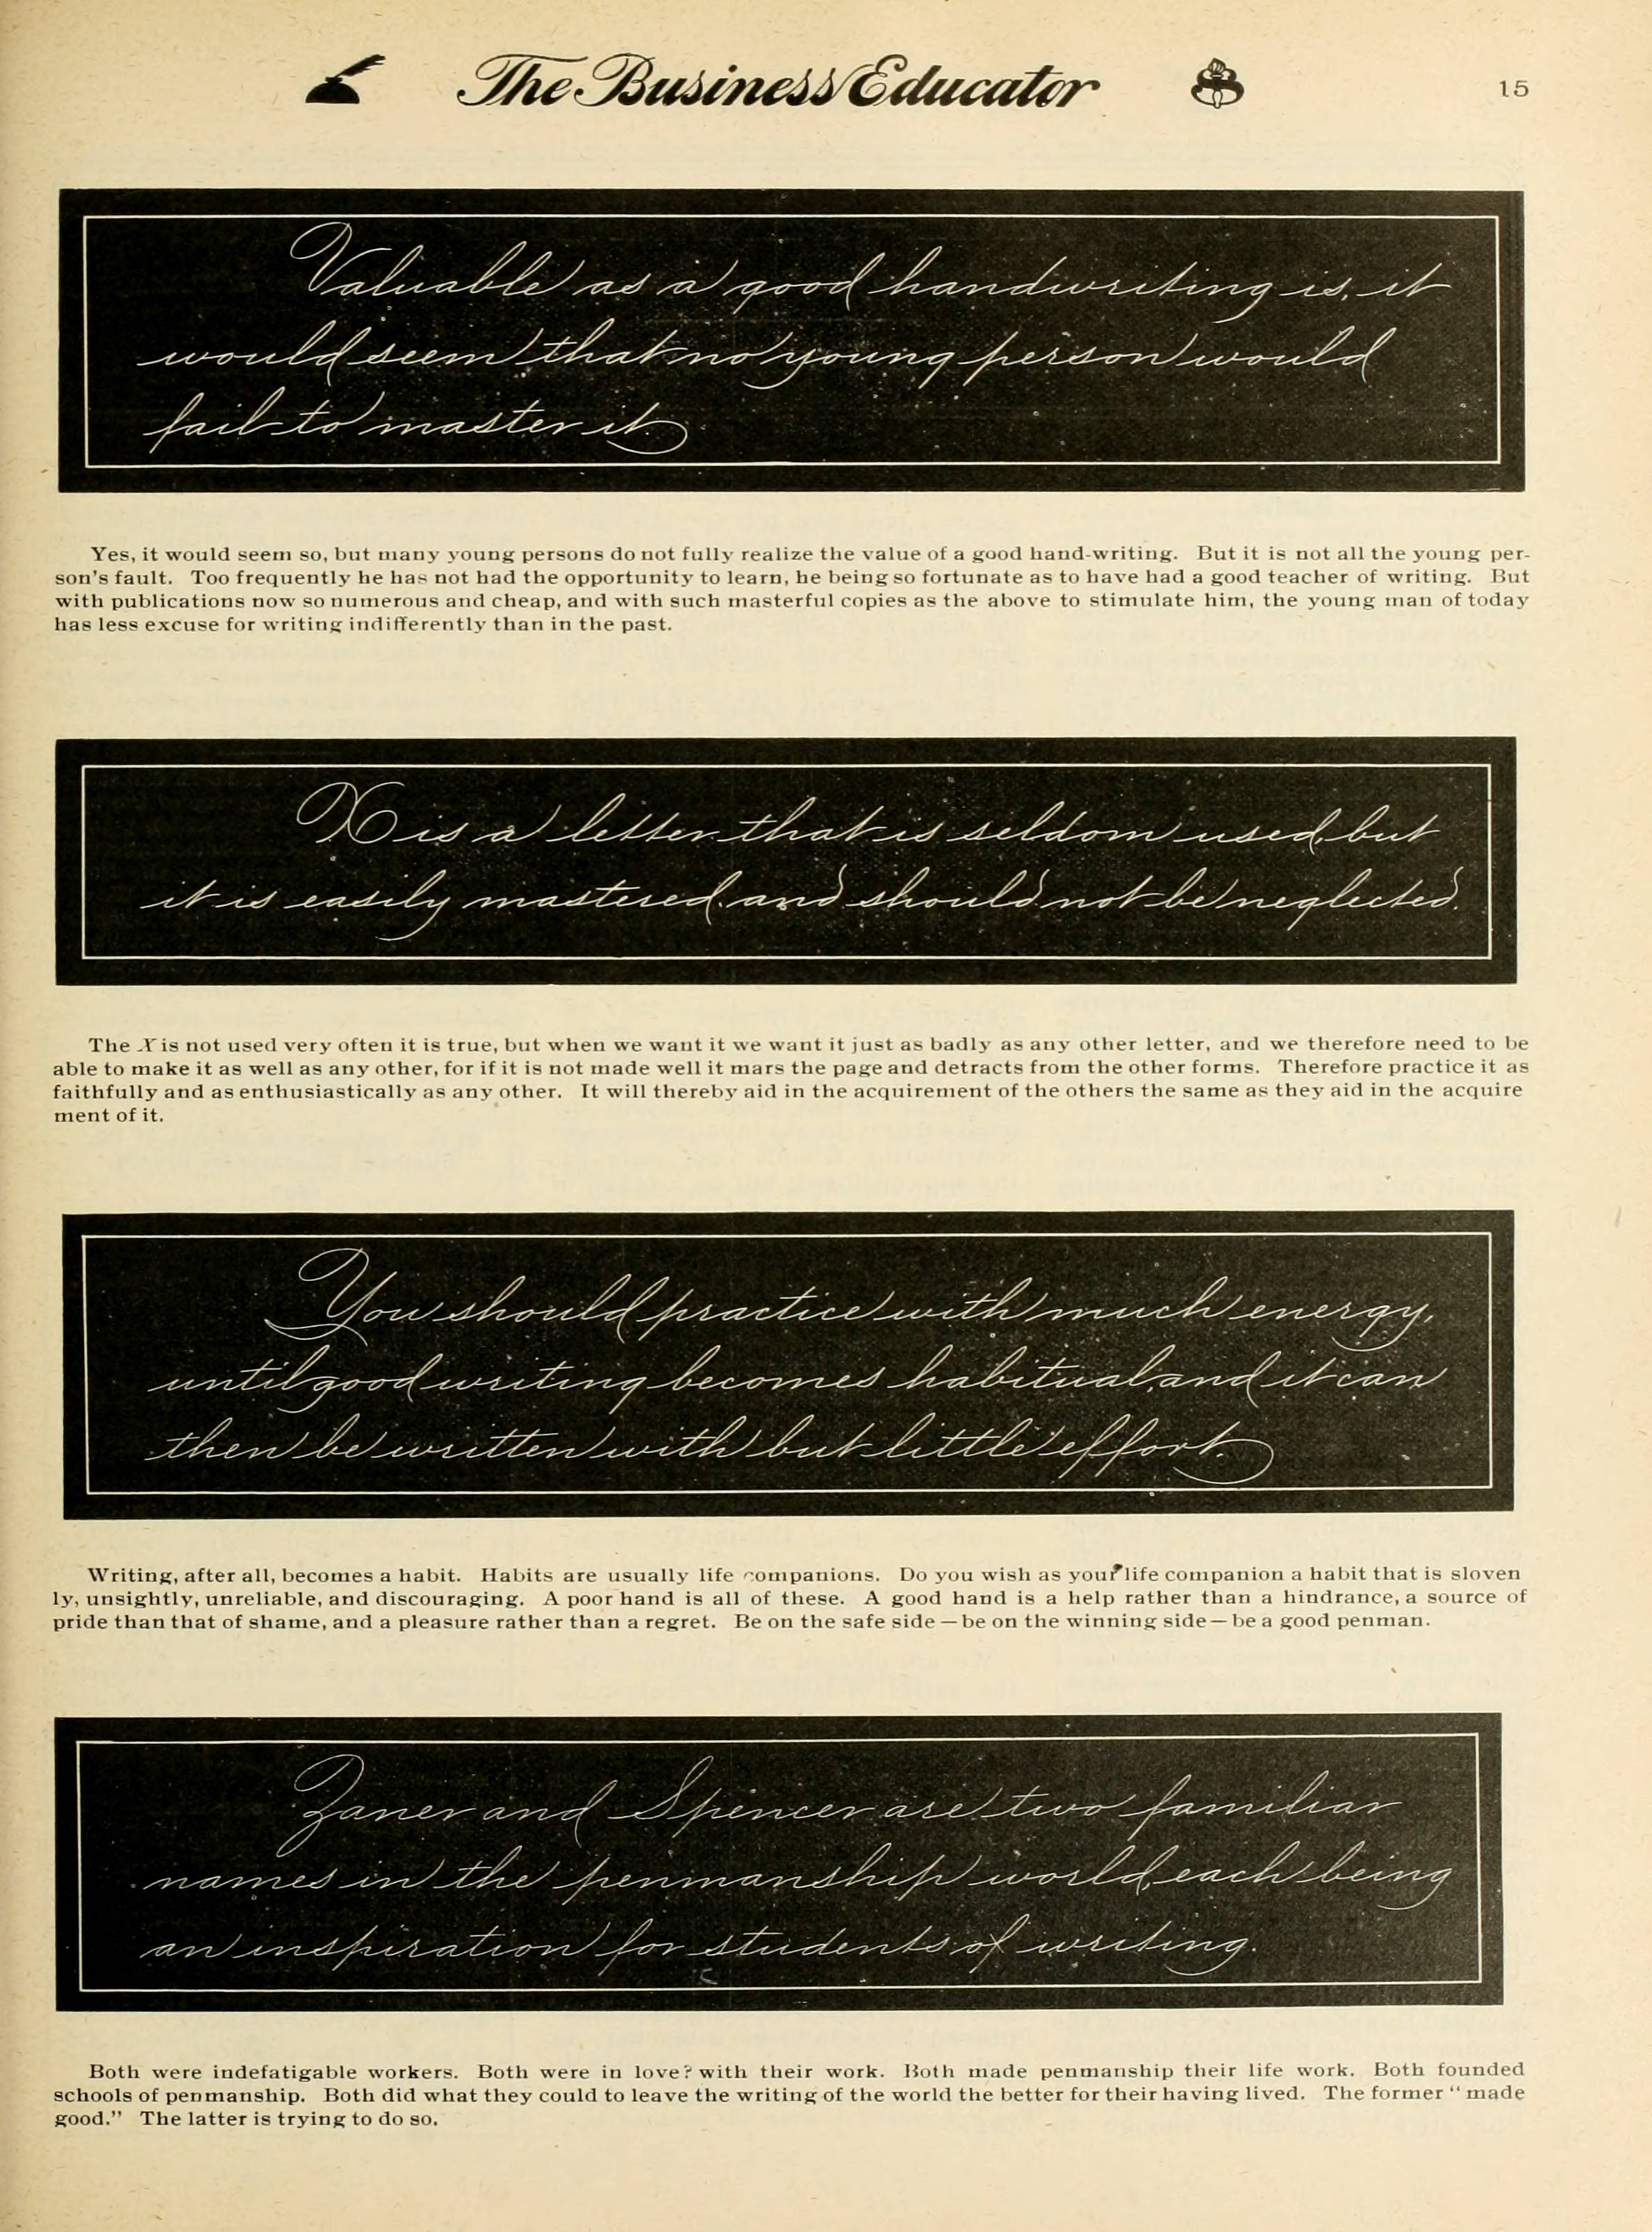 The Business Educator
15
Valuable as a good handwriting is, it
would seem that no young person would
fail to master it.
Yes, it would seem so, but many young persons do not fully realize the value of a good hand-writing. But it is not all the young per-
son's fault. Too frequently he has not had the opportunity to learn, he being so fortunate as to have had a good teacher of writing. But
with publications now so numerous and cheap, and with such masterful copies as the above to stimulate him, the young man of today
has less excuse for writing indifferently than in the past.
X is a letter that is seldom used, but
it is easily mastered, and should not be neglected.
The X is not used very often it is true, but when we want it we want it just as badly as any other letter, and we therefore need to be
able to make it as well as any other, for if it is not made well it mars the page and detracts from the other forms. Therefore practice it as
faithfully and as enthusiastically as any other. It will thereby aid in the acquirement of the others the same as they aid in the acquire
ment of it.
You should practice with much energy,
until good writing becomes habitual, and it can
then be written with but little effort.
Writing, after all, becomes a habit. Habits are usually life companions. Do you wish as your life companion a habit that is sloven
ly, unsightly, unreliable, and discouraging. A poor hand is all of these. A good hand is a help rather than a hindrance, a source of
pride than that of shame, and a pleasure rather than a regret. Be on the safe side — be on the winning side — be a good penman.
Zaner and Spencer are two familiar
names in the penmanship world, each being
an inspiration for students of writing.
Both were indefatigable workers. Both were in love? with their work. Both made penmanship their life work. Both founded
schools of penmanship. Both did what they could to leave the writing of the world the better for their having lived. The former "made
good." The latter is trying to do so.